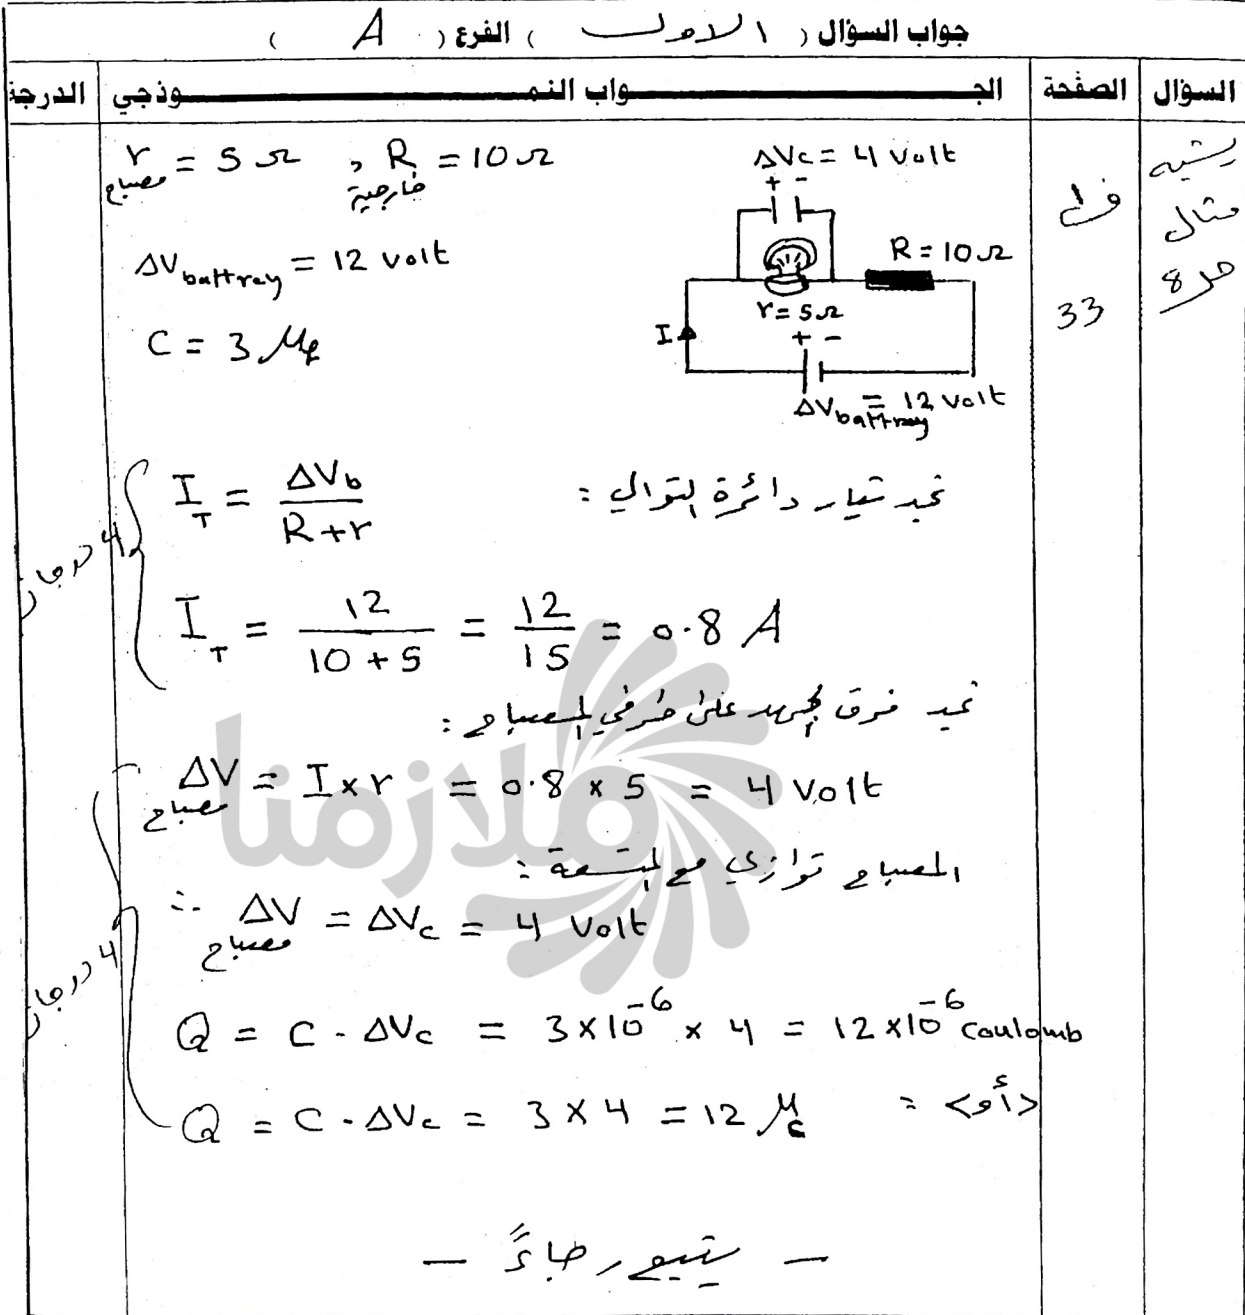 جواب السؤال ( الاول ) الفرع ( A )
السؤال الصفحة الجــواب النمــوذجي الدرجة
يشبه
مثال
8
ف1
33
r مصباح = 5 Ω , R خارجية = 10 Ω
ΔVbattray = 12 volt
C = 3 μf
ΔVc = 4 Volt
+ -
R = 10 Ω
r = 5 Ω
I
+ -
ΔVbattray = 12 Volt
نجد تيار دائرة التوالي :
I_T = ΔVb / R+r
4 درجات
I_T = 12 / 10 + 5 = 12 / 15 = 0.8 A
نجد فرق الجهد على طرفي المصباح :
ΔV مصباح = I x r = 0.8 x 5 = 4 Volt
المصباح توازي مع المتسعة :
∴ ΔV مصباح = ΔVc = 4 Volt
4 درجات
Q = C . ΔVc = 3 x 10^-6 x 4 = 12 x 10^-6 Coulomb
<أو> :
Q = C . ΔVc = 3 x 4 = 12 μc
ملازمنا
— يتبع رجاءً —